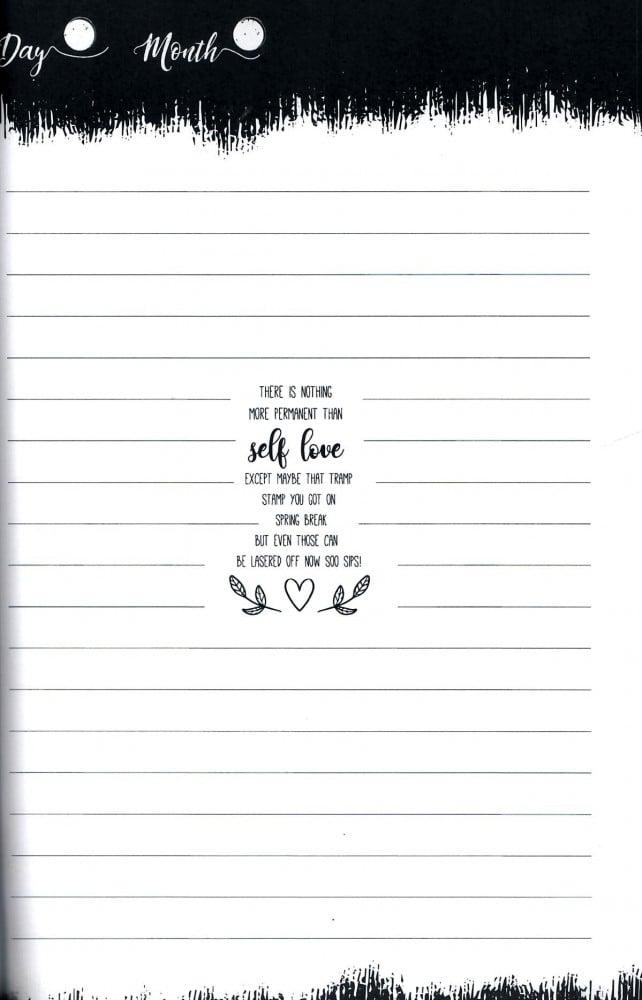 Day Month
THERE IS NOTHING
MORE PERMANENT THAN
self love
EXCEPT MAYBE THAT TRAMP
STAMP YOU GOT ON
SPRING BREAK
BUT EVEN THOSE CAN
BE LASERED OFF NOW SOO SIPS!